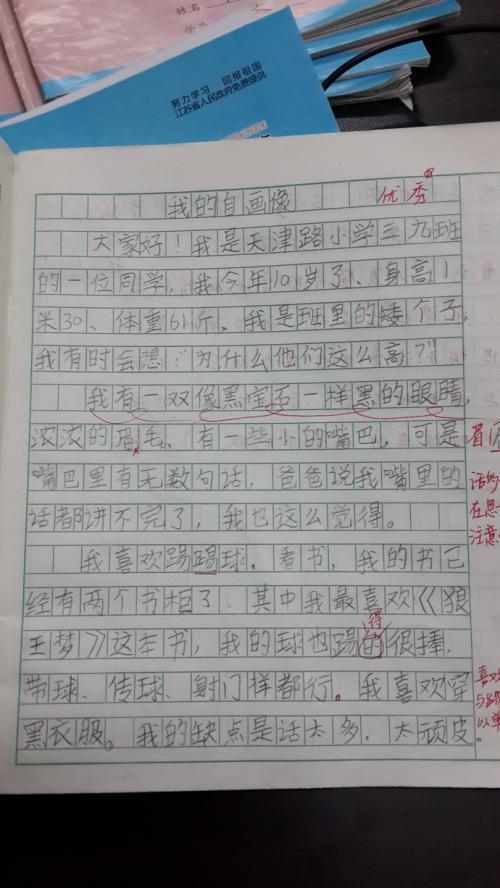 姓名
努力学习 回报祖国
江苏省人民政府免费提供
优秀
我的自画像
大家好！我是天津路小学三九班
的一位同学，我今年10岁了、身高1
米30、体重61斤。我是班里的矮个子，
我有时会想："为什么他们这么高？"
我有一双像黑宝石一样黑的眼睛，
浓浓的眉毛、有一些小的嘴巴。可是
嘴巴里有无数句话，爸爸说我嘴里的
话都讲不完了，我也这么觉得。
我喜欢踢踢球．看书，我的书已
经有两个书柜了．其中我最喜欢《狼
得
王梦》这本书，我的球也踢的很捧，
带球、传球、射门样都行。我喜欢穿
黑衣服。我的缺点是话太多．太顽皮。
眉
话
在思
注意
喜欢
与
以单